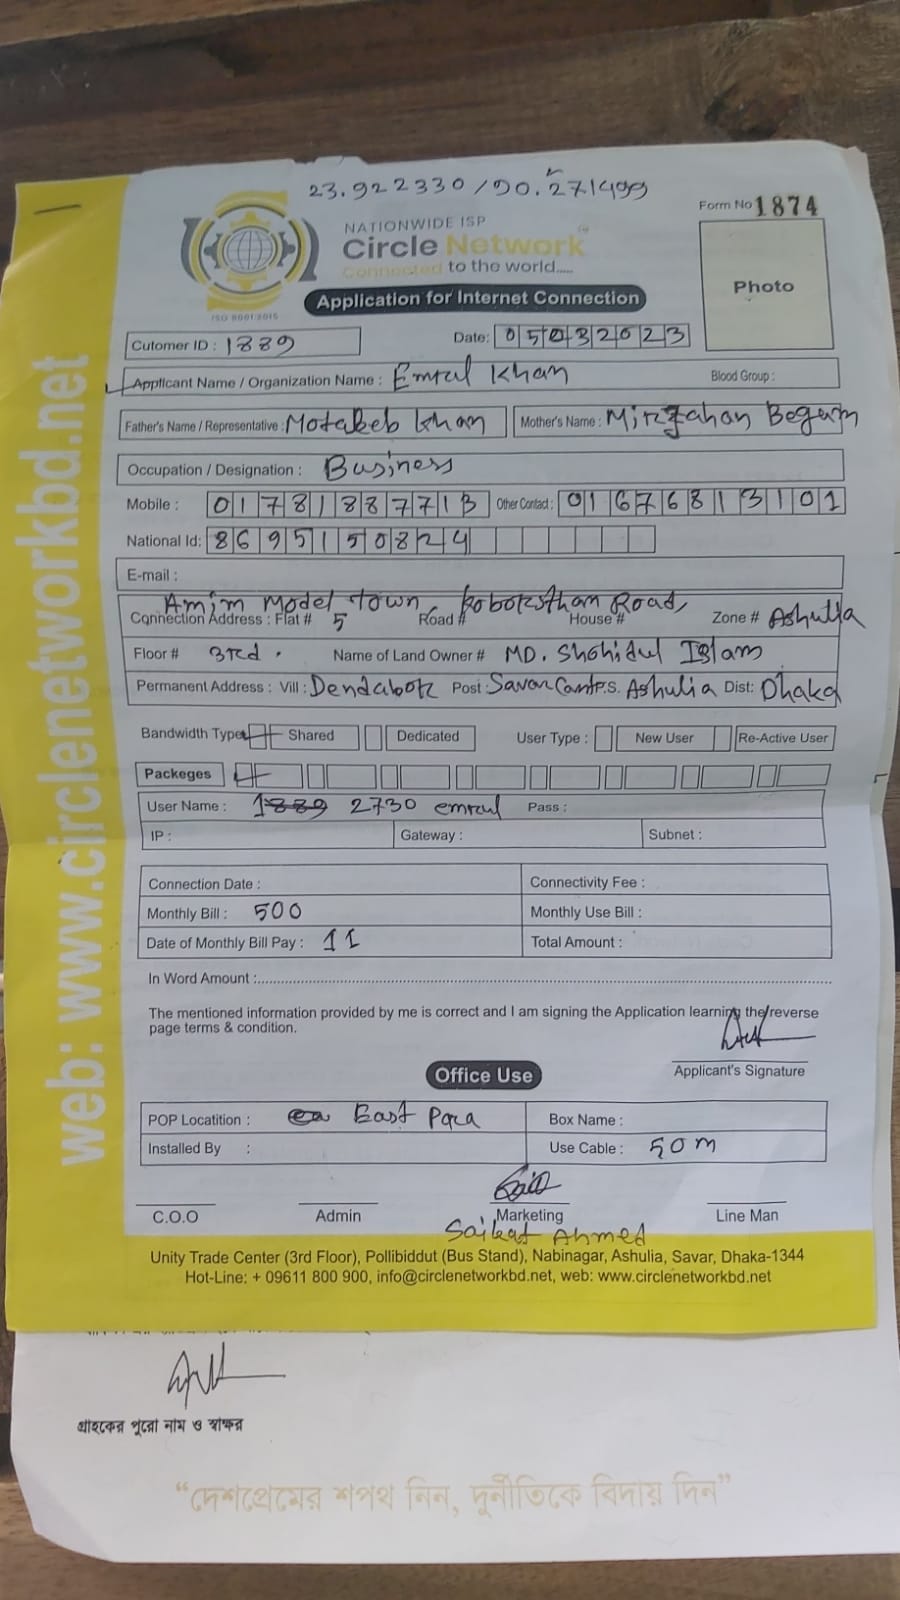 23.922330/90.271499
Form No 1874
NATIONWIDE ISP
Circle Network
Connected to the world.....
ISO 9001:2015
Photo
Application for Internet Connection
Cutomer ID : 1889 Date: 05032023
Applicant Name / Organization Name : Emrul Khan Blood Group :
Father's Name / Representative : Motaleb Khan Mother's Name : Mirzahan Begum
Occupation / Designation : Business
Mobile : 01781887713 Other Contact : 01676813101
National Id: 8695150824
E-mail :
Amim Model Town, Road,
Connection Address : Flat # 5 Road # House # Zone # Ashulia
Floor # 3rd . Name of Land Owner # MD. Shohidul Islam
Permanent Address : Vill : Dendabor Post : Savar Cantt P.S. Ashulia Dist: Dhaka
Bandwidth Type Shared Dedicated User Type : New User Re-Active User
Packeges
User Name : 1889 2730 emrul Pass :
IP : Gateway : Subnet :
Connection Date : Connectivity Fee :
Monthly Bill : 500 Monthly Use Bill :
Date of Monthly Bill Pay : 11 Total Amount :
In Word Amount :
The mentioned information provided by me is correct and I am signing the Application learning the reverse
page terms & condition.
Applicant's Signature
Office Use
POP Locatition : East Para Box Name :
Installed By : Use Cable : 50 m
C.O.O Admin Marketing Line Man
Saikat Ahmed
Unity Trade Center (3rd Floor), Pollibiddut (Bus Stand), Nabinagar, Ashulia, Savar, Dhaka-1344
Hot-Line: + 09611 800 900, info@circlenetworkbd.net, web: www.circlenetworkbd.net
web: www.circlenetworkbd.net
গ্রাহকের পুরো নাম ও স্বাক্ষর
“দেশপ্রেমের শপথ নিন, দুর্নীতিকে বিদায় দিন”